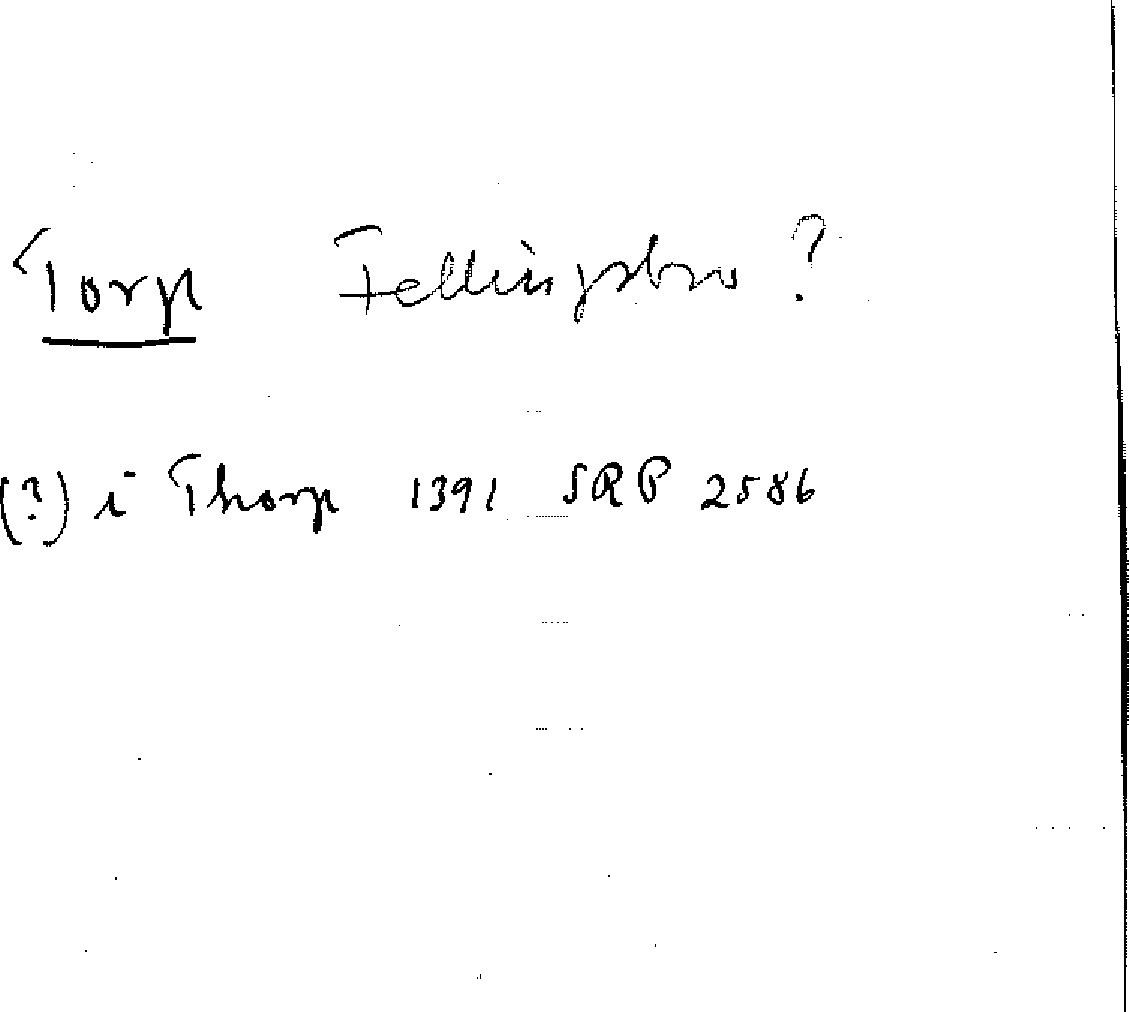 Torp Fellingsbro ?
(?) i Thorp 1391 SRP 2586